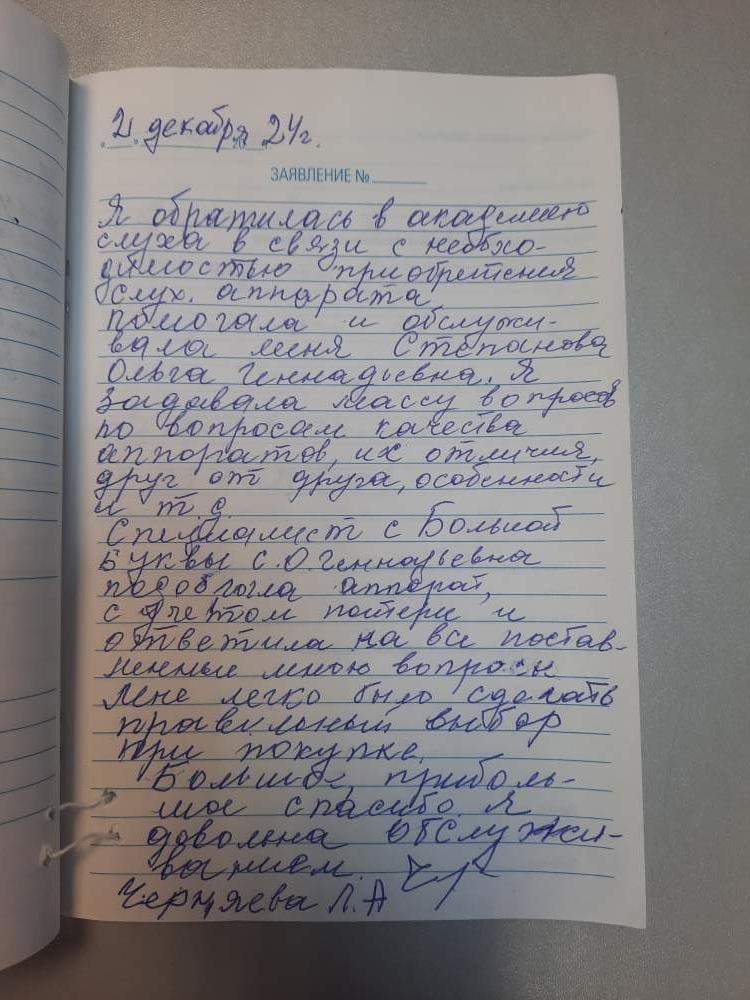 2 декабря 24г.
ЗАЯВЛЕНИЕ №
Я обратилась в академию
слуха в связи с необхо-
димостью приобретения
слух. аппарата
помогала и обслужи-
вала меня Степанова
Ольга Геннадьевна. Я
задавала массу вопросов
по вопросам качества
аппаратов, их отличия,
друг от друга, особенности
и т.д.
Специалист с Большой
Буквы С.О.Геннадьевна
подобрала аппарат,
с учетом потери и
ответила на все постав-
ленные мною вопросы
Мне легко было сделать
правильный выбор
при покупке.
Большое, приболь-
шое спасибо. Я
довольна обслужи-
ванием.
Черняева Л.А